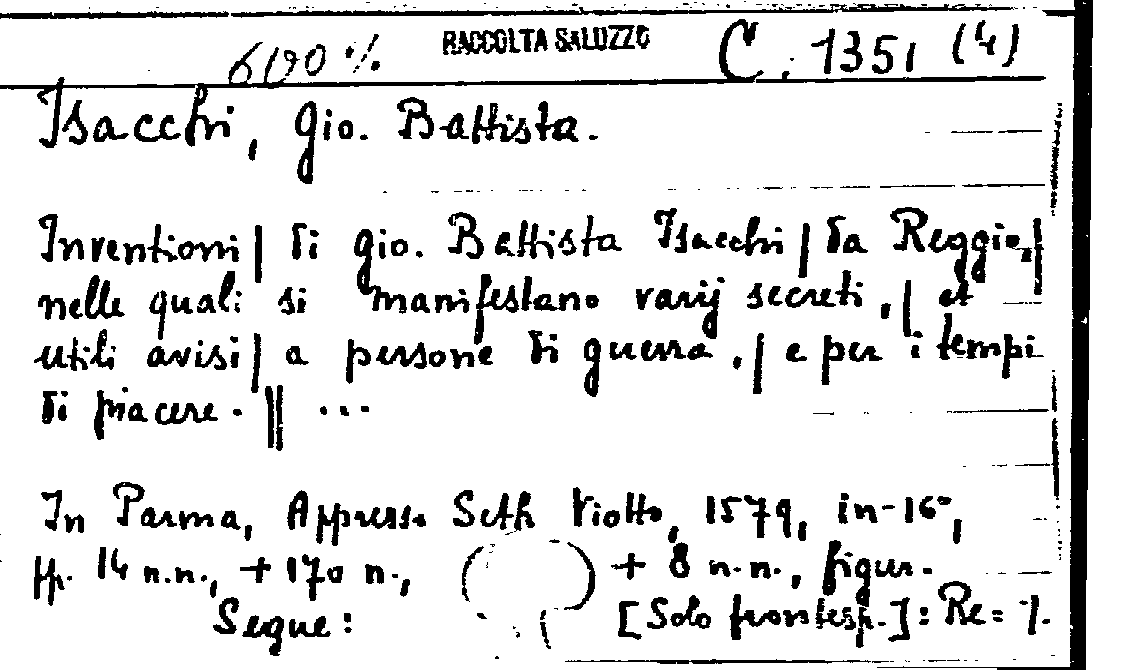 600 ·/. RACCOLTA SALUZZO C. 1351 (4)
Isacchi, Gio. Battista.
Inventioni | di Gio. Battista Isacchi | da Reggio, |
nelle quali si manifestano varij secreti, | et
utili avisi | a persone di guerra, | e per i tempi
di piacere. || ...
In Parma, Appresso Seth Viotto, 1579, in-16°,
pp. 14 n.n., + 170 n., + 8 n.n., figur.
Segue: [Solo frontesp.]: Re = /.